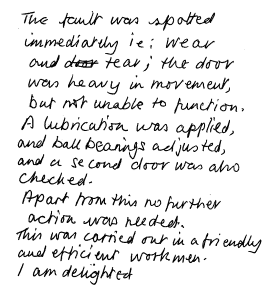 The fault was spotted
immediately ie: wear
and tear; the door
was heavy in movement,
but not unable to function.
A lubrication was applied,
and ball bearings adjusted,
and a second door was also
checked.
Apart from this no further
action was needed.
This was carried out in a friendly
and efficient workmen.
I am delighted